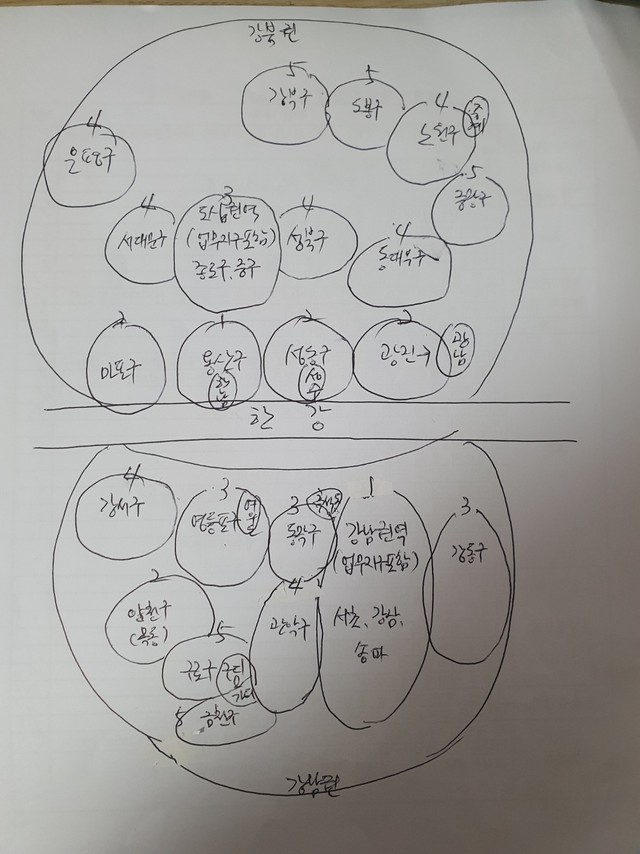 강북권
5
강북구
5
도봉구
4
노원구
중계
4
은평구
5
중랑구
4
서대문구
3
도심권역
(업무지구포함)
종로구, 중구
4
성북구
4
동대문구
2
마포구
1
용산구
한남
2
성동구
성수
2
광진구
광남
한 강
4
강서구
3
영등포구
여의
3
동작구
흑석동
1
강남권역
(업무지구포함)
서초, 강남,
송파
3
강동구
2
양천구
(목동)
4
관악구
5
구로구
구디
가디
5
금천구
강남권